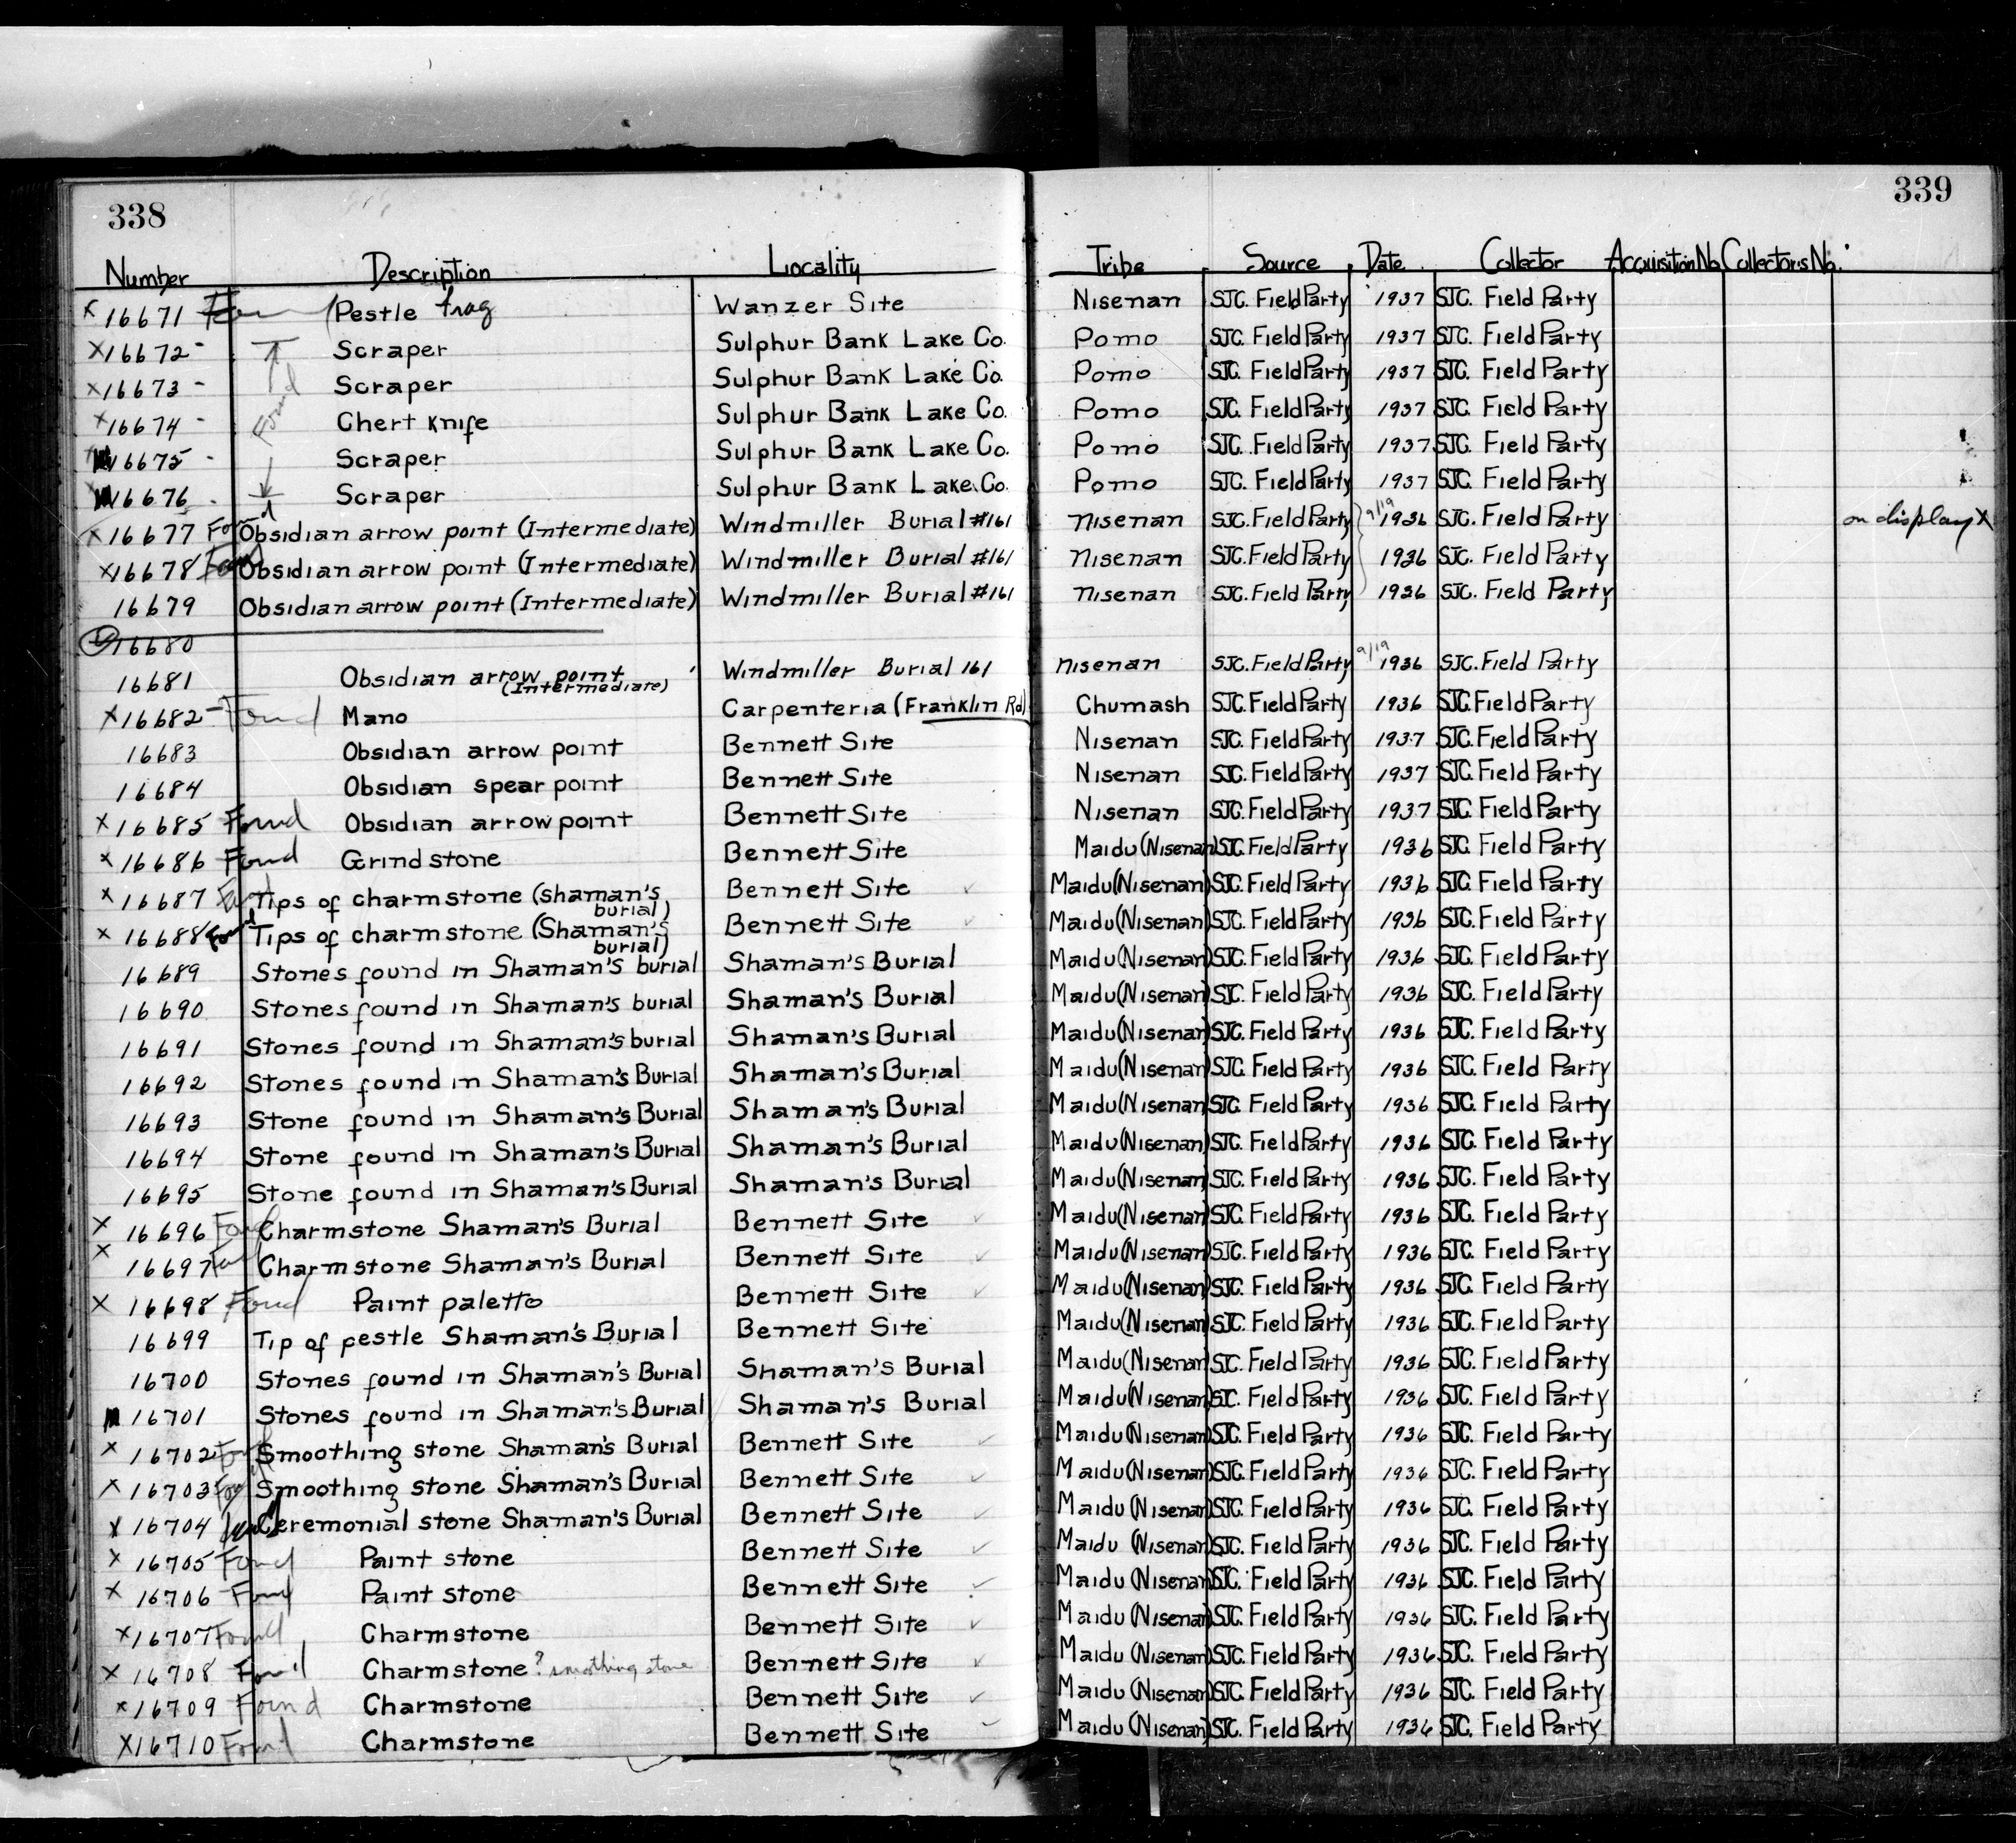 338
339
Number Description Locality Tribe Source Date Collector Acquisition No. Collector's No.
x 16671 Pestle frag Wanzer Site Nisenan SJC. Field Party 1937 SJC. Field Party
x 16672 - Scraper Sulphur Bank Lake Co. Pomo SJC. Field Party 1937 SJC. Field Party
x 16673 - Scraper Sulphur Bank Lake Co. Pomo SJC. Field Party 1937 SJC. Field Party
x 16674 - Found Chert knife Sulphur Bank Lake Co. Pomo SJC. Field Party 1937 SJC. Field Party
16675 - Scraper Sulphur Bank Lake Co. Pomo SJC. Field Party 1937 SJC. Field Party
16676 - Scraper Sulphur Bank Lake Co. Pomo SJC. Field Party 1937 SJC. Field Party
x 16677 Found Obsidian arrow point (Intermediate) Windmiller Burial #161 Nisenan SJC. Field Party 9/19 1936 SJC. Field Party on display X
x 16678 Found Obsidian arrow point (Intermediate) Windmiller Burial #161 Nisenan SJC. Field Party 1936 SJC. Field Party
16679 Obsidian arrow point (Intermediate) Windmiller Burial #161 Nisenan SJC. Field Party 1936 SJC. Field Party
16680
16681 Obsidian arrow point (Intermediate) Windmiller Burial 161 Nisenan SJC. Field Party 9/19 1936 SJC. Field Party
x 16682 - Found Mano Carpenteria (Franklin Rd) Chumash SJC. Field Party 1936 SJC. Field Party
16683 Obsidian arrow point Bennett Site Nisenan SJC. Field Party 1937 SJC. Field Party
16684 Obsidian spear point Bennett Site Nisenan SJC. Field Party 1937 SJC. Field Party
x 16685 Found Obsidian arrow point Bennett Site Nisenan SJC. Field Party 1937 SJC. Field Party
x 16686 Found Grind stone Bennett Site Maidu (Nisenan) SJC. Field Party 1936 SJC. Field Party
x 16687 Found Tips of charmstone (shaman's burial) Bennett Site ✓ Maidu (Nisenan) SJC. Field Party 1936 SJC. Field Party
x 16688 Found Tips of charmstone (Shaman's burial) Bennett Site ✓ Maidu (Nisenan) SJC. Field Party 1936 SJC. Field Party
16689 Stones found in Shaman's burial Shaman's Burial Maidu (Nisenan) SJC. Field Party 1936 SJC. Field Party
16690 Stones found in Shaman's burial Shaman's Burial Maidu (Nisenan) SJC. Field Party 1936 SJC. Field Party
16691 Stones found in Shaman's burial Shaman's Burial Maidu (Nisenan) SJC. Field Party 1936 SJC. Field Party
16692 Stones found in Shaman's Burial Shaman's Burial Maidu (Nisenan) SJC. Field Party 1936 SJC. Field Party
16693 Stone found in Shaman's Burial Shaman's Burial Maidu (Nisenan) SJC. Field Party 1936 SJC. Field Party
16694 Stone found in Shaman's Burial Shaman's Burial Maidu (Nisenan) SJC. Field Party 1936 SJC. Field Party
16695 Stone found in Shaman's Burial Shaman's Burial Maidu (Nisenan) SJC. Field Party 1936 SJC. Field Party
x 16696 Found Charmstone Shaman's Burial Bennett Site ✓ Maidu (Nisenan) SJC. Field Party 1936 SJC. Field Party
x 16697 Found Charmstone Shaman's Burial Bennett Site ✓ Maidu (Nisenan) SJC. Field Party 1936 SJC. Field Party
x 16698 Found Paint palette Bennett Site ✓ Maidu (Nisenan) SJC. Field Party 1936 SJC. Field Party
16699 Tip of pestle Shaman's Burial Bennett Site Maidu (Nisenan) SJC. Field Party 1936 SJC. Field Party
16700 Stones found in Shaman's Burial Shaman's Burial Maidu (Nisenan) SJC. Field Party 1936 SJC. Field Party
16701 Stones found in Shaman's Burial Shaman's Burial Maidu (Nisenan) SJC. Field Party 1936 SJC. Field Party
x 16702 Found Smoothing stone Shaman's Burial Bennett Site ✓ Maidu (Nisenan) SJC. Field Party 1936 SJC. Field Party
x 16703 Found Smoothing stone Shaman's Burial Bennett Site ✓ Maidu (Nisenan) SJC. Field Party 1936 SJC. Field Party
x 16704 Found Ceremonial stone Shaman's Burial Bennett Site ✓ Maidu (Nisenan) SJC. Field Party 1936 SJC. Field Party
x 16705 Found Paint stone Bennett Site ✓ Maidu (Nisenan) SJC. Field Party 1936 SJC. Field Party
x 16706 Found Paint stone Bennett Site ✓ Maidu (Nisenan) SJC. Field Party 1936 SJC. Field Party
x 16707 Found Charmstone Bennett Site ✓ Maidu (Nisenan) SJC. Field Party 1936 SJC. Field Party
x 16708 Found Charmstone ? smoothing stone Bennett Site ✓ Maidu (Nisenan) SJC. Field Party 1936 SJC. Field Party
x 16709 Found Charmstone Bennett Site ✓ Maidu (Nisenan) SJC. Field Party 1936 SJC. Field Party
x 16710 Found Charmstone Bennett Site Maidu (Nisenan) SJC. Field Party 1936 SJC. Field Party